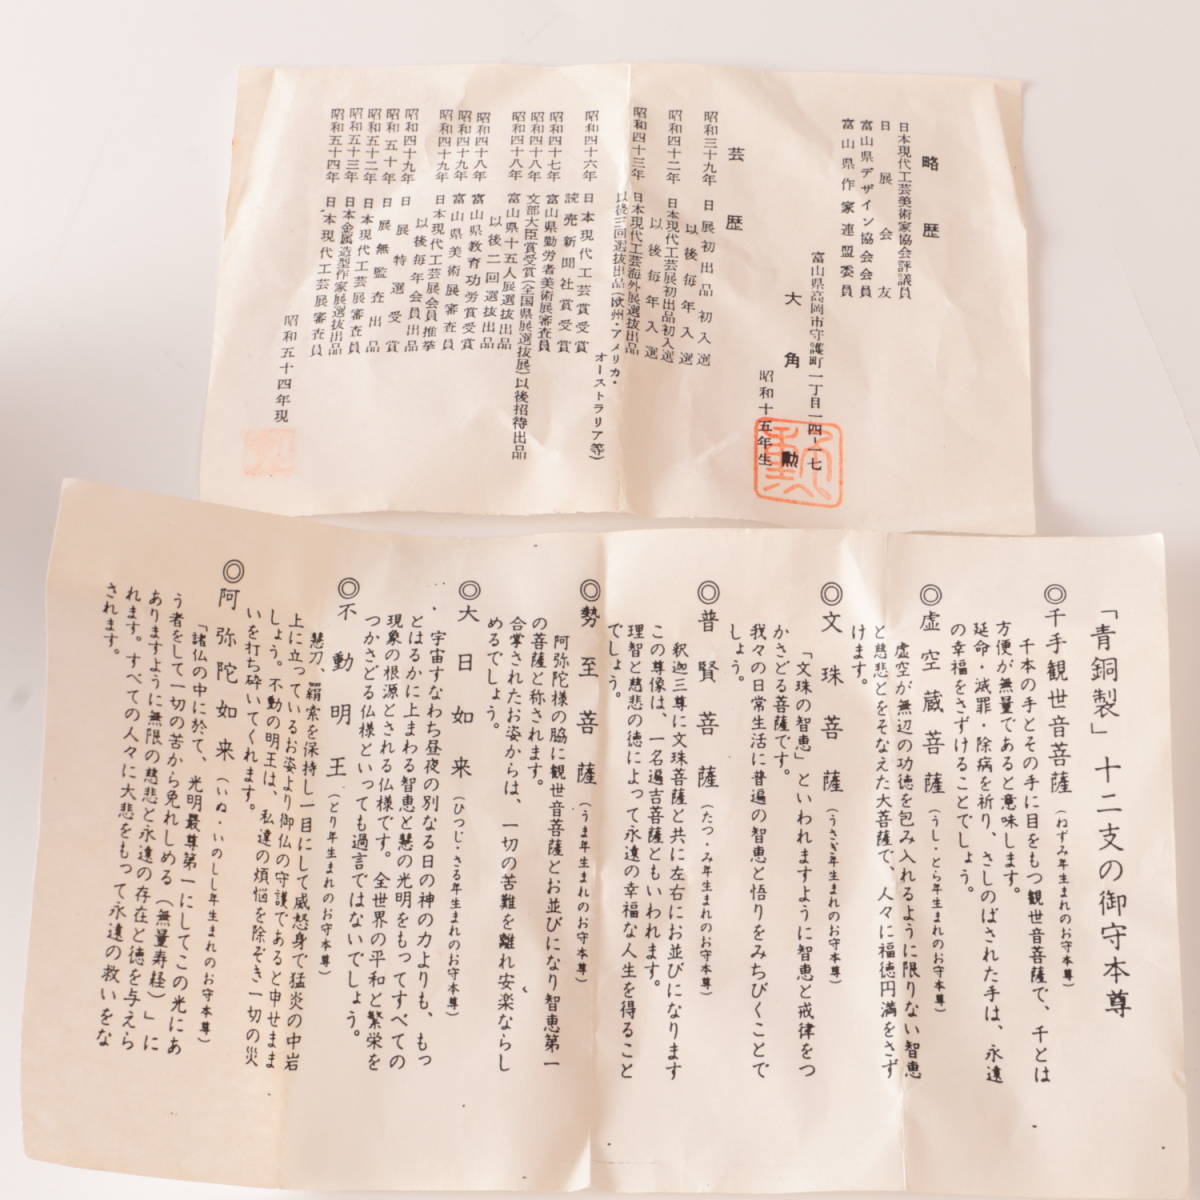 略歴
日本現代工芸美術家協会評議員
日展会友
富山県デザイン協会会員
富山県作家連盟委員
富山県高岡市守護町一丁目一四-一七
大角勲
昭和十五年生
芸歴
昭和三十九年 日展初出品初入選
以後毎年入選
昭和四十二年 日本現代工芸展初出品初入選
以後毎年入選
昭和四十三年 日本現代工芸海外展選抜出品
以後三回選抜出品(欧州・アメリカ・
オーストラリア等)
昭和四十六年 日本現代工芸賞受賞
読売新聞社賞受賞
昭和四十七年 富山県勤労者美術展審査員
昭和四十八年 文部大臣賞受賞(全国県展選抜展)以後招待出品
昭和四十八年 富山県十五人展選抜出品
以後二回選抜出品
昭和四十八年 富山県教育功労賞受賞
昭和四十九年 富山県美術展審査員
昭和四十九年 日本現代工芸展会員推挙
以後毎年会員出品
昭和四十九年 日展特選受賞
昭和五十年 日展無監査出品
昭和五十二年 日本現代工芸展審査員
昭和五十三年 日本金属造型作家展選抜出品
昭和五十四年 日本現代工芸展審査員
昭和五十四年現
「青銅製」十二支の御守本尊
◎千手観世音菩薩(ねずみ年生まれのお守本尊)
千本の手とその手に目をもつ観世音菩薩で、千とは
方便が無量であると意味します。
延命・滅罪・除病を祈り、さしのばされた手は、永遠
の幸福をさずけることでしょう。
◎虚空蔵菩薩(うし・とら年生まれのお守本尊)
虚空が無辺の功徳を包み入れるように限りない智恵
と慈悲とをそなえた大菩薩で、人々に福徳円満をさず
けます。
◎文珠菩薩(うさぎ年生まれのお守本尊)
「文珠の智恵」といわれますように智恵と戒律をつ
かさどる菩薩です。
我々の日常生活に普遍の智恵と悟りをみちびくことで
しょう。
◎普賢菩薩(たつ・み年生まれのお守本尊)
釈迦三尊に文珠菩薩と共に左右にお並びになります
この尊像は、一名遍吉菩薩ともいわれます。
理智と慈悲の徳によって永遠の幸福な人生を得ること
でしょう。
◎勢至菩薩(うま年生まれのお守本尊)
阿弥陀様の脇に観世音菩薩とお並びになり智恵第一
の菩薩と称されます。
合掌されたお姿からは、一切の苦難を離れ安楽ならし
めるでしょう。
◎大日如来(ひつじ・さる年生まれのお守本尊)
宇宙すなわち昼夜の別なる日の神の力よりも、もっ
とはるかに上まわる智恵と慧の光明をもってすべての
現象の根源とされる仏様です。全世界の平和と繁栄を
つかさどる仏様といっても過言ではないでしょう。
◎不動明王(とり年生まれのお守本尊)
慧刀、羂索を保持し一目にして威怒身で猛炎の中岩
上に立っているお姿より御仏の守護であると申せまま
しょう。不動の明王は、私達の煩悩を除ぞき一切の災
いを打ち砕いてくれます。
◎阿弥陀如来(いぬ・いのしし年生まれのお守本尊)
「諸仏の中に於て、光明最尊第一にしてこの光にあ
う者をして一切の苦から免れしめる(無量寿経)」に
ありますように無限の慈悲と永遠の存在と徳を与えら
れます。すべての人々に大悲をもって永遠の救いをな
されます。